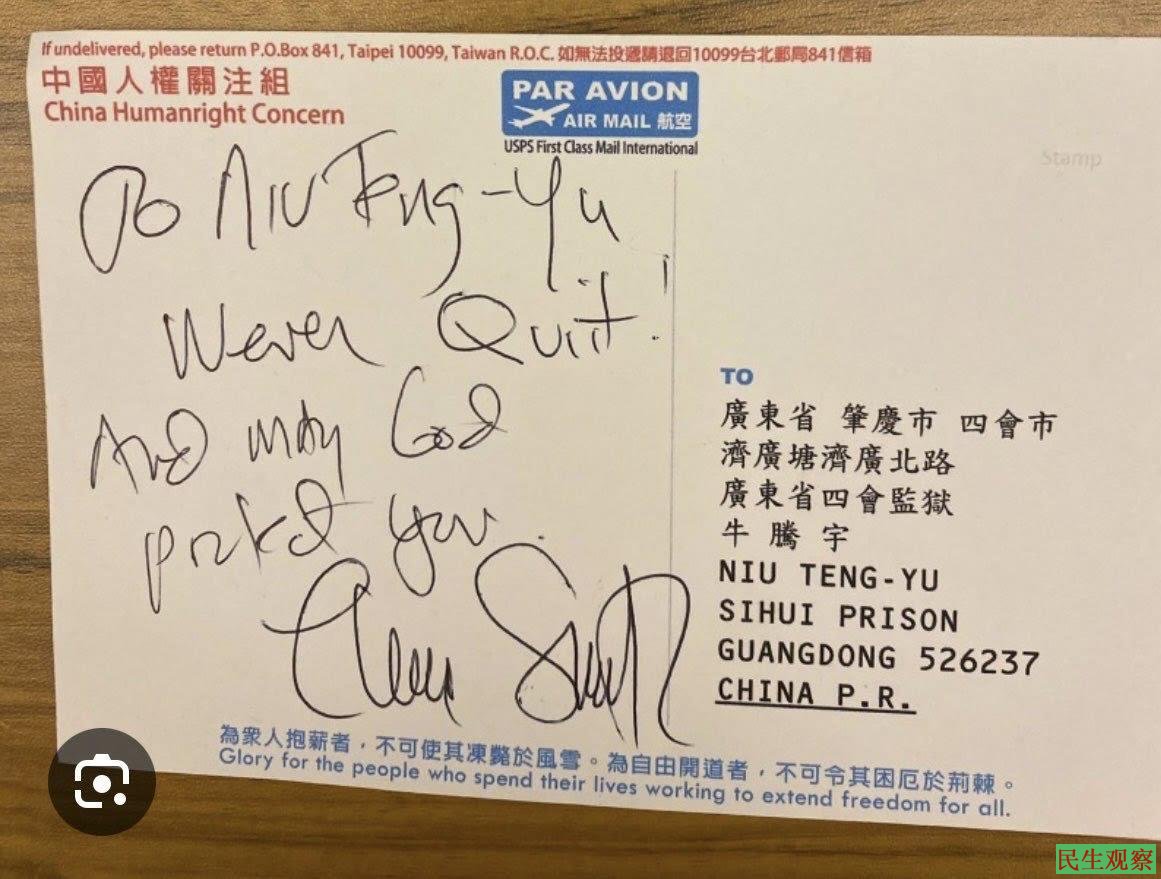 If undelivered, please return P.O.Box 841, Taipei 10099, Taiwan R.O.C. 如無法投遞請退回10099台北郵局841信箱
中國人權關注組
China Humanright Concern
PAR AVION
AIR MAIL 航空
USPS First Class Mail International
Stamp
To Niu Teng-Yu
Never Quit!
And may God
protect you.
Chris Smith
TO
廣東省 肇慶市 四會市
濟廣塘濟廣北路
廣東省四會監獄
牛 騰 宇
NIU TENG-YU
SIHUI PRISON
GUANGDONG 526237
CHINA P.R.
為眾人抱薪者，不可使其凍斃於風雪。為自由開道者，不可令其困厄於荊棘。
Glory for the people who spend their lives working to extend freedom for all.
民生观察